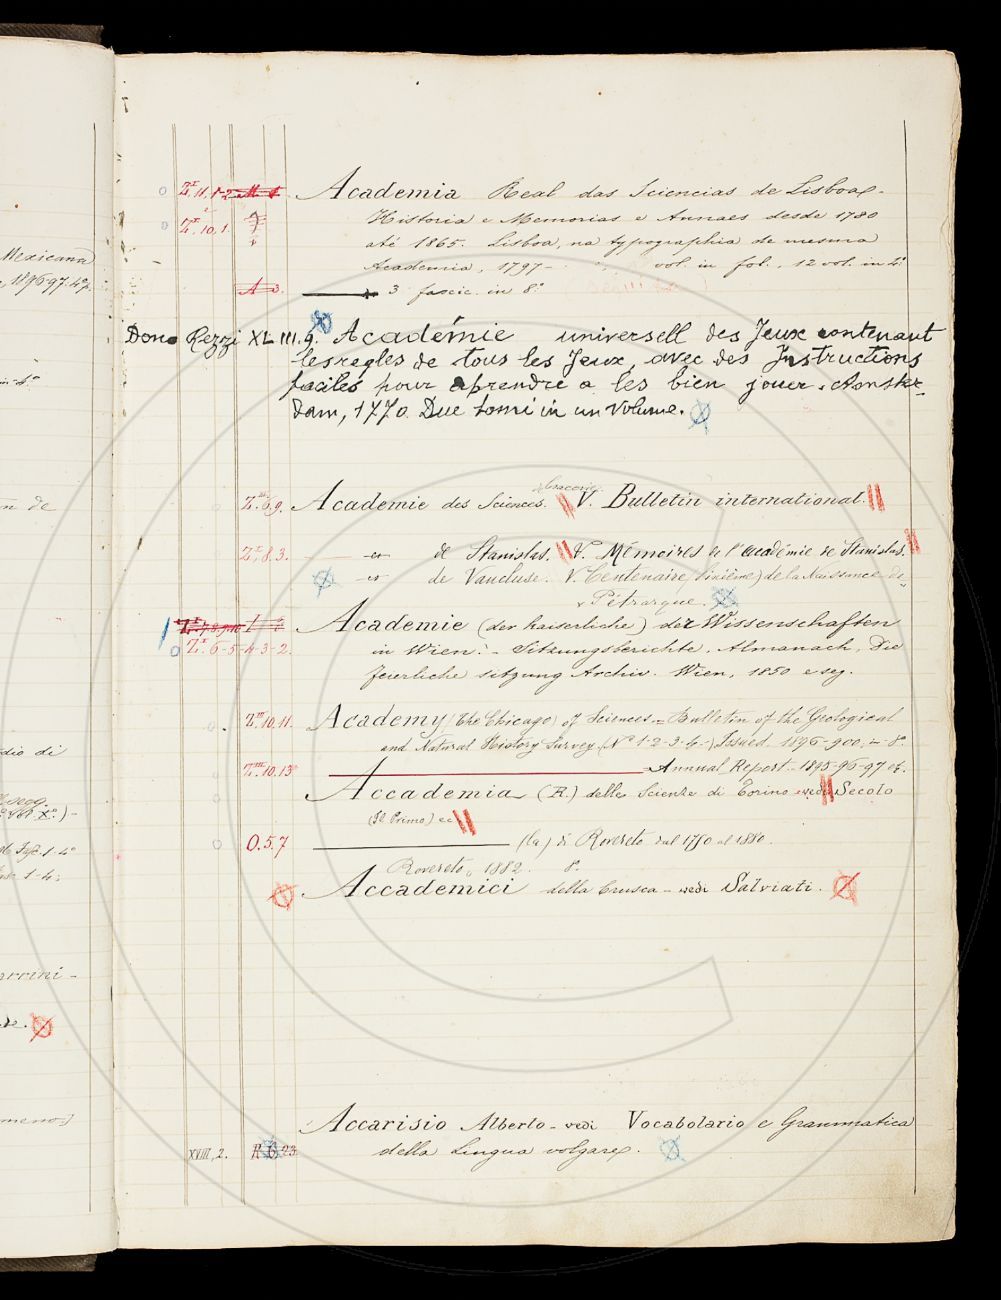 Mexicana
1896-97. 4°
Z.I 11, 1-2 Academia Real das Sciencias de Lisboa -
Z.I 10, 1. Historia e Memorias e Annaes desde 1780
até 1865. Lisboa, na typographia de mesma
Academia, 1797- vol. in fol., 12 vol. in 4°
A 3. 3 fascic. in 8°
Dono Rezzi XLIII.9. Académie universell des Jeux contenaut
les regles de tous les Jeux, avec des Instructions
faciles pour aprendre a les bien jouer. Amster-
dam, 1770. Due tomi in un volume.
Cracovie
Z.III 6.9. Academie des Sciences. V. Bulletin international.
Z.I, 8.3. de Stanislas. V. Mémoires de l'Académie de Stanislas.
de Vaucluse. V. Centenaire (sixième) de la Naissance de
Pétrarque.
Academie (der kaiserliche) der Wissenschaften
Z.I 6-5-4-3-2. in Wien: - Sitzungsberichte. Almanach, Die
feierliche sitzung Archiv. Wien, 1850 e seg.
Z.III 10.11. Academy (The Chicago) of Sciences = Bulletin of the Geological
and Natural History Survey (N° 1-2-3-4-) Issued 1896-900, - 8°
Z.III 10.13 Annual Report - 1895-96-97
dio di
Accademia (R.) delle Scienze di Torino - vedi Secolo
(Il Primo) ec
O.5.7 (la) di Rovereto dal 1750 al 1880.
Rovereto, 1882. 8°.
Accademici della Crusca - vedi Salviati.
Accarisio Alberto - vedi Vocabolario e Grammatica
XVIII, 2. R 6, 23 della Lingua volgare.